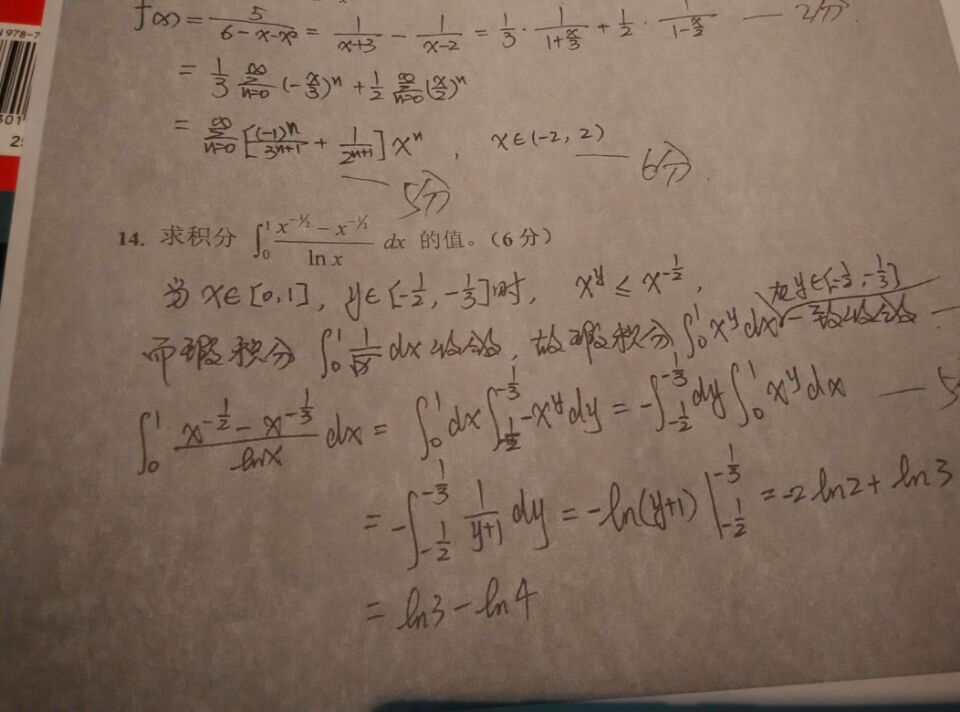 f(x) = 5/(6-x-x²) = 1/(x+3) - 1/(x-2) = 1/3 · 1/(1+x/3) + 1/2 · 1/(1-x/2) — 2分
= 1/3 ∑_{n=0}^{∞} (-x/3)^n + 1/2 ∑_{n=0}^{∞} (x/2)^n
= ∑_{n=0}^{∞} [(-1)^n/3^{n+1} + 1/2^{n+1}] x^n , x∈(-2, 2) — 6分.
— 5分
14. 求积分 ∫_0^1 (x^{-1/2} - x^{-1/3})/ln x dx 的值。(6分)
当 x∈[0,1], y∈[-1/2, -1/3]时, x^y ≤ x^{-1/2},
而瑕积分 ∫_0^1 1/√x dx 收敛, 故瑕积分 ∫_0^1 x^y dx 在y∈[-1/2, -1/3] 一致收敛 —
∫_0^1 (x^{-1/2} - x^{-1/3})/lnx dx = ∫_0^1 dx ∫_{-1/2}^{-1/3} -x^y dy = -∫_{-1/2}^{-1/3} dy ∫_0^1 x^y dx — 5
= -∫_{-1/2}^{-1/3} 1/(y+1) dy = -ln(y+1) |_{-1/2}^{-1/3} = -2ln2 + ln3
= ln3 - ln4
978-7
301